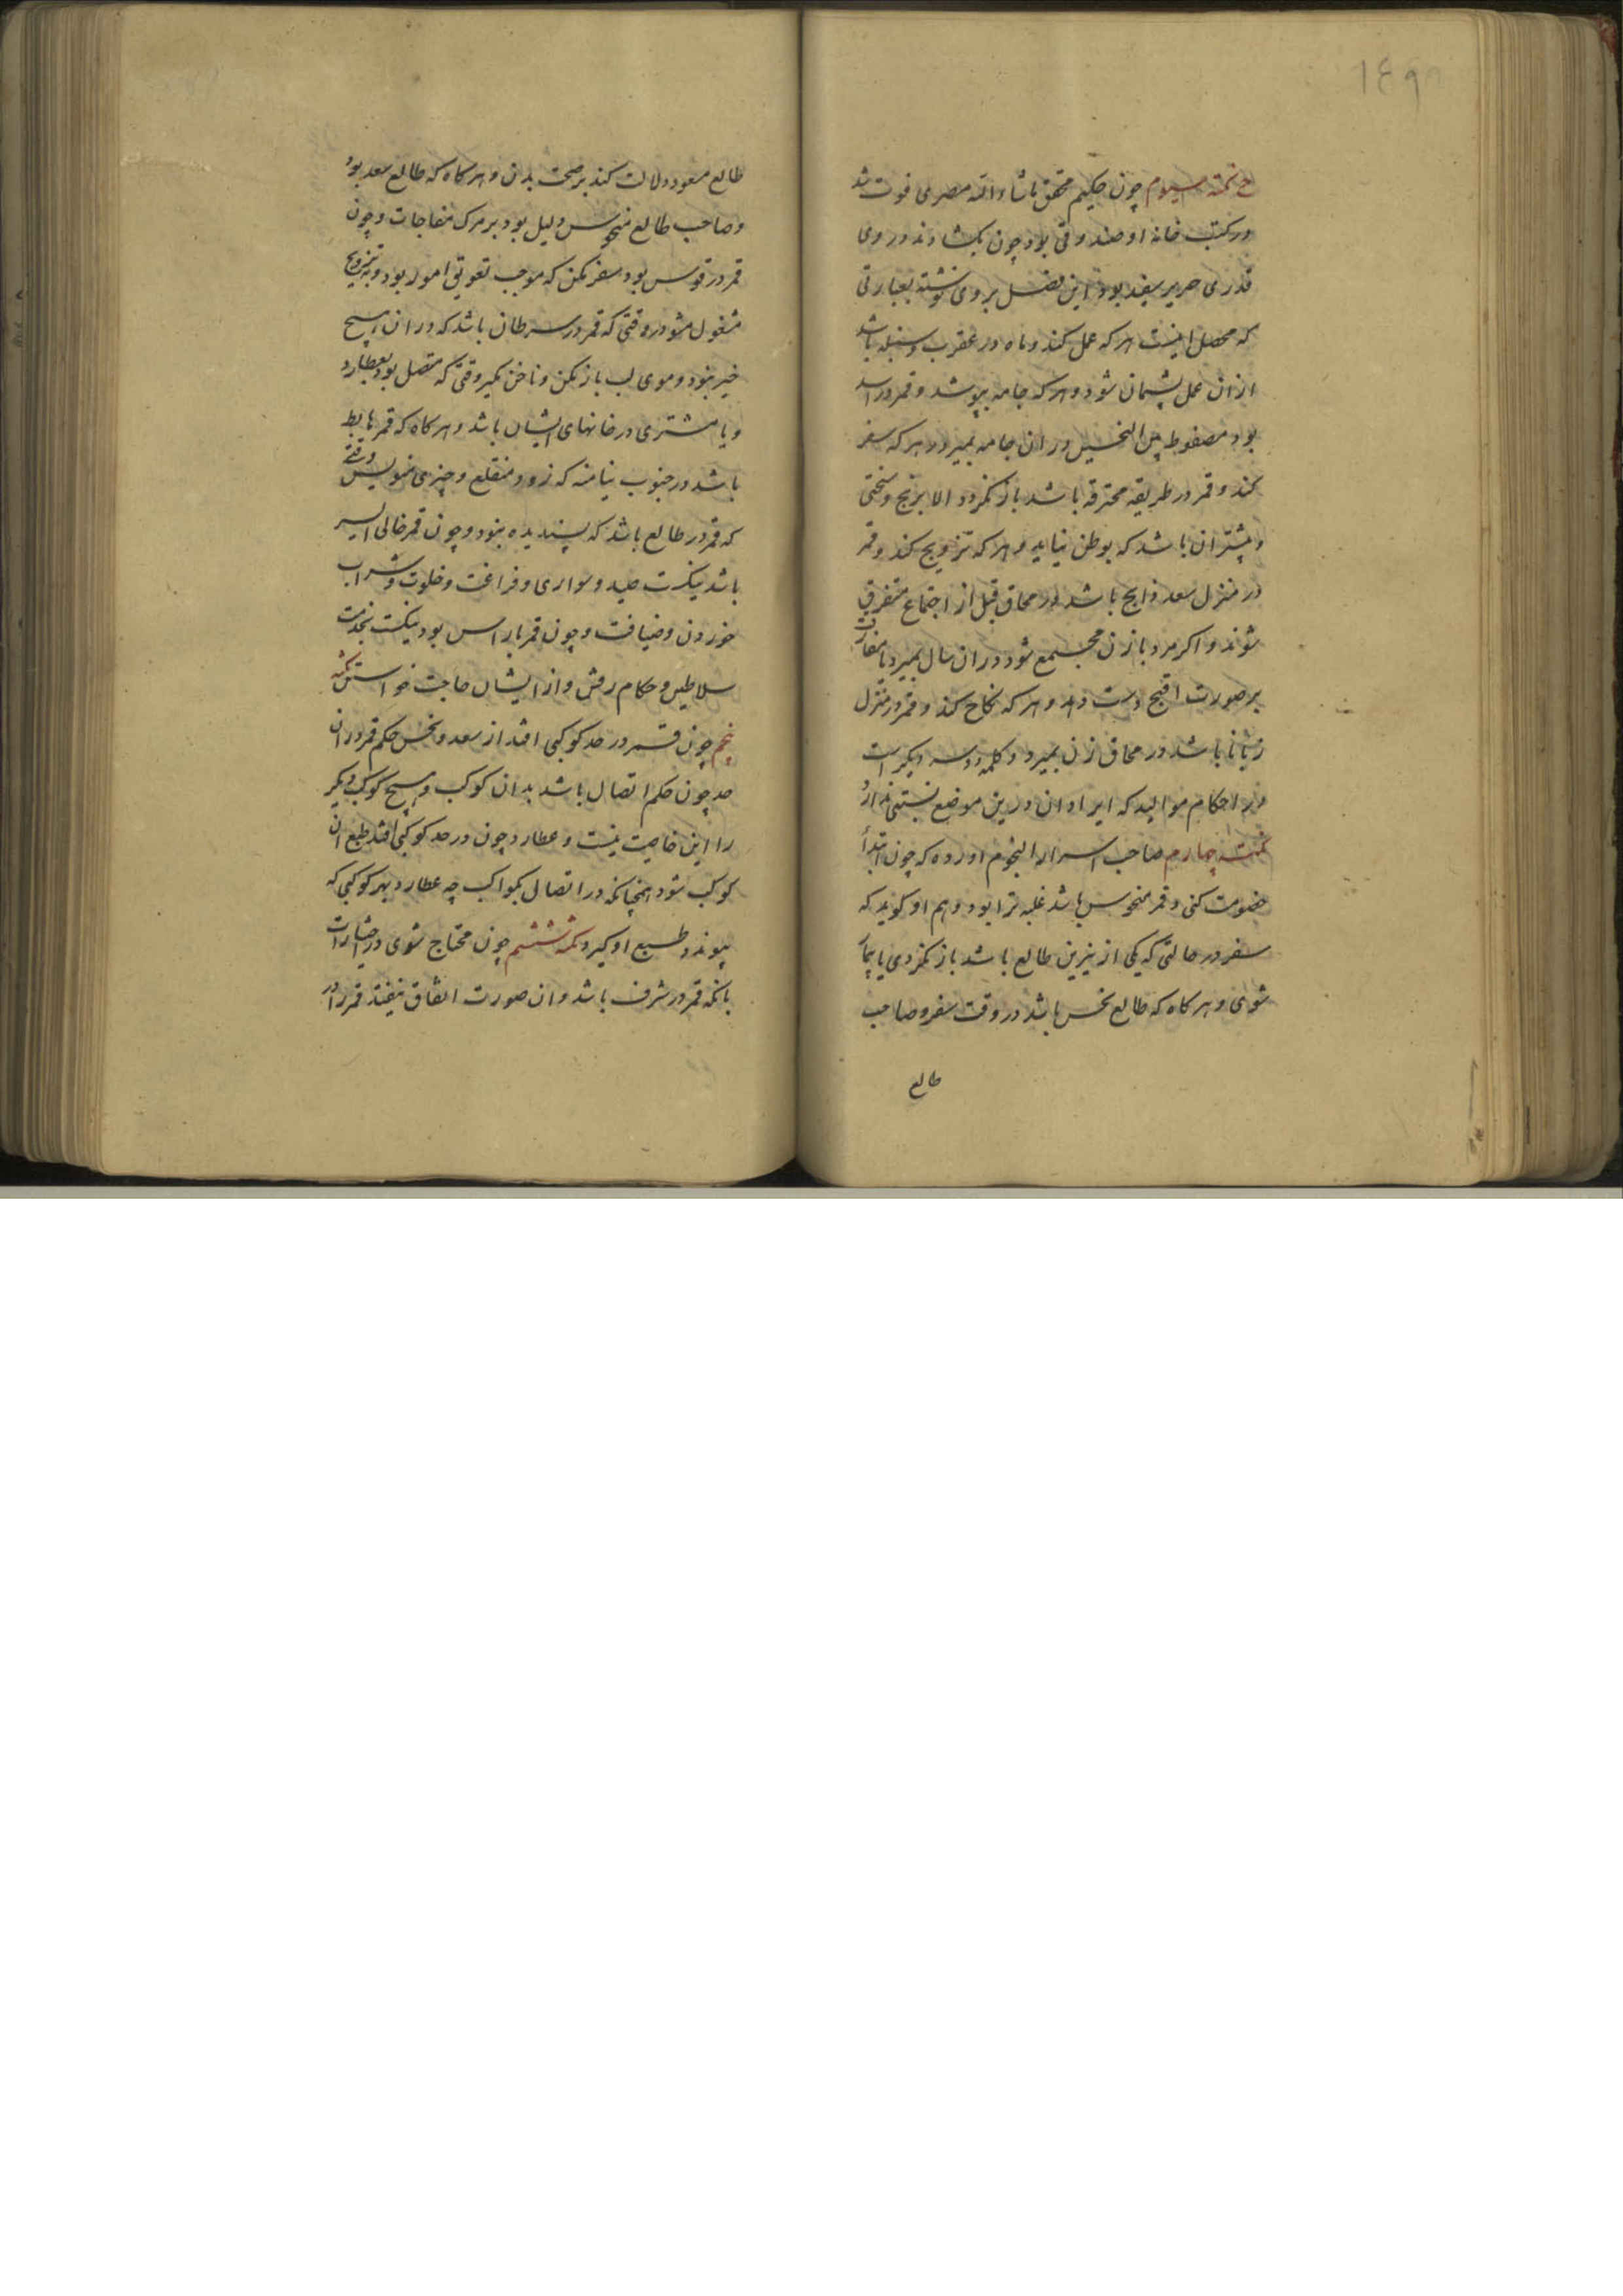 ١٤٩
نکته سیوم چون حکیم محقق ماشاء الله مصری فوت شد
در کتب خانه او صندوقی بود چون بکشادند در وی
قدری حریر سفید بود این فصل بر وی نوشته بعبارتی
که محصل اینست هر که عمل کند و ماه در عقرب و سنبله باشد
از ان عمل پشیمان شود و هر که جامه بپوشد و قمر در اسد
بود مضغوط بین النحسین در ان جامه بمیرد و هر که سفر
کند و قمر در طریقه محترقه باشد باز نکردد الا برنج و سختی
و بیشتر ان باشد که بوطن نیاید و هر که تزویج کند و قمر
در منزل سعد ذابح باشد در محاق قبل از اجتماع متفرق
شوند و اکر مرد با زن مجتمع شود در ان سال بمیرد یا مفارقت
بر صورت اقبح دست دهد و هر که نکاح کند و قمر در منزل
زبانا باشد در محاق زن بمیرد و کلمه دو سه دیکر است
در احکام موالید که ایراد ان درین موضع نسبتی ندارد
نکته چهارم صاحب اسرار النجوم اورده که چون ابتدأ
خصومت کنی و قمر منحوس باشد غلبه ترا بود و هم او کوید که
سفر در حالتی که یکی از نیرین طالع باشد باز نکردی یا بیمار
شوی و هر کاه که طالع نحس باشد در وقت سفر و صاحب
طالع
طالع مسعود دلالت کند بر صحت بدن و هر کاه که طالع سعد بود
و صاحب طالع منحوس دلیل بود بر مرک مفاجات و چون
قمر در قوس بود سفر مکن که موجب تعویق امور بود و بتزویج
مشغول مشو در وقتی که قمر در سرطان باشد که در ان هیچ
خیر نبود و موی لب باز مکن و ناخن مکیر وقتی که متصل بود بعطارد
و یا مشتری در خانهای ایشان باشد و هر کاه که قمر هابط
باشد در جنوب بنا منه که زود منقلع و چیزی منویس وقتی
که قمر در طالع باشد که پسندیده نبود و چون قمر خالی السیر
باشد نیکست صید و سواری و فراغت و خلوت و شراب
خوردن و ضیافت و چون قمر با راس بود نیکست بخدمت
سلاطین و حکام رفتن و از ایشان حاجت خواستن نکته
پنجم چون قمر در حد کوکبی افتد از سعد و نحس حکم قمر در ان
حد چون حکم اتصال باشد بدان کوکب و هیچ کوکب دیکر
را این خاصیت نیست و عطارد چون در حد کوکبی افتد طبع ان
کوکب شود همچنانکه در اتصال بکواکب چه عطارد بهر کوکبی که
پیوندد طبع او کیرد نکته ششم چون محتاج شوی در اختیارات
بانکه قمر در شرف باشد و ان صورت اتفاق نیفتد قمر را در